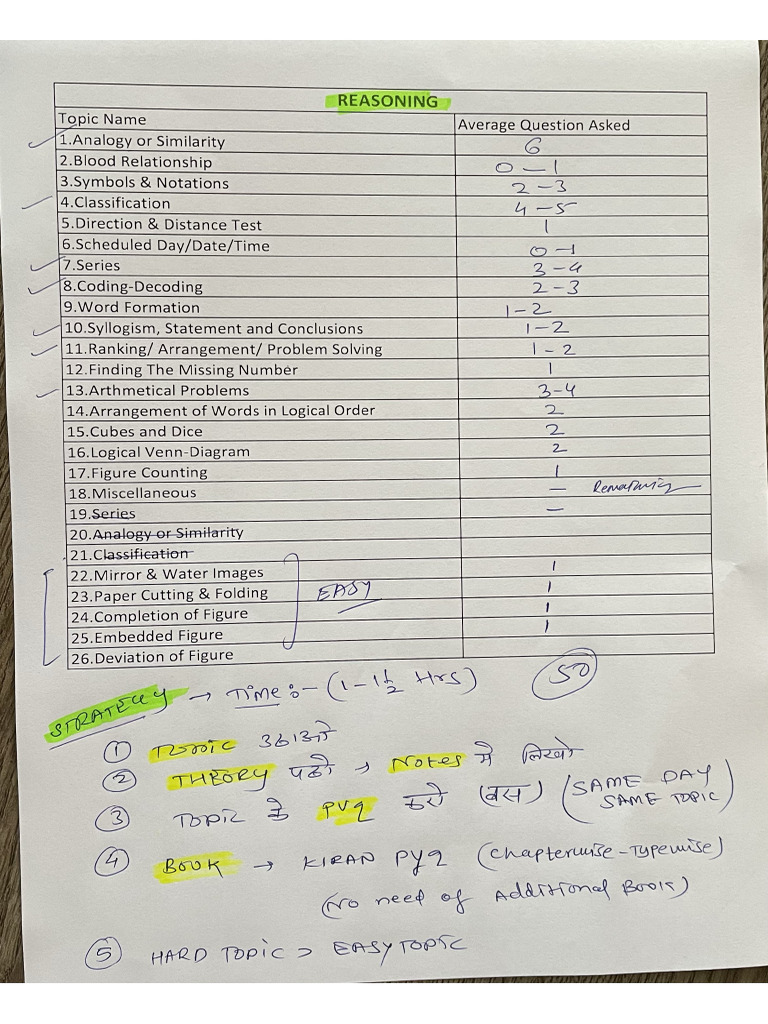 REASONING
Topic Name Average Question Asked
1.Analogy or Similarity 6
2.Blood Relationship 0-1
3.Symbols & Notations 2-3
4.Classification 4-5
5.Direction & Distance Test 1
6.Scheduled Day/Date/Time 0-1
7.Series 3-4
8.Coding-Decoding 2-3
9.Word Formation 1-2
10.Syllogism, Statement and Conclusions 1-2
11.Ranking/ Arrangement/ Problem Solving 1-2
12.Finding The Missing Number 1
13.Arthmetical Problems 3-4
14.Arrangement of Words in Logical Order 2
15.Cubes and Dice 2
16.Logical Venn-Diagram 2
17.Figure Counting 1
18.Miscellaneous —
19.Series —
20.Analogy or Similarity
21.Classification
22.Mirror & Water Images 1
23.Paper Cutting & Folding EASY 1
24.Completion of Figure 1
25.Embedded Figure 1
26.Deviation of Figure
50
STRATEGY → TIME:- (1-1½ Hrs)
① TOPIC उठाओ
② THEORY पढो → Notes में लिखो
③ TOPIC के PYQ करो (बस) (SAME DAY SAME TOPIC)
④ BOOK → KIRAN PYQ (Chapterwise-Typewise)
(No need of Additional Book)
⑤ HARD TOPIC > EASY TOPIC